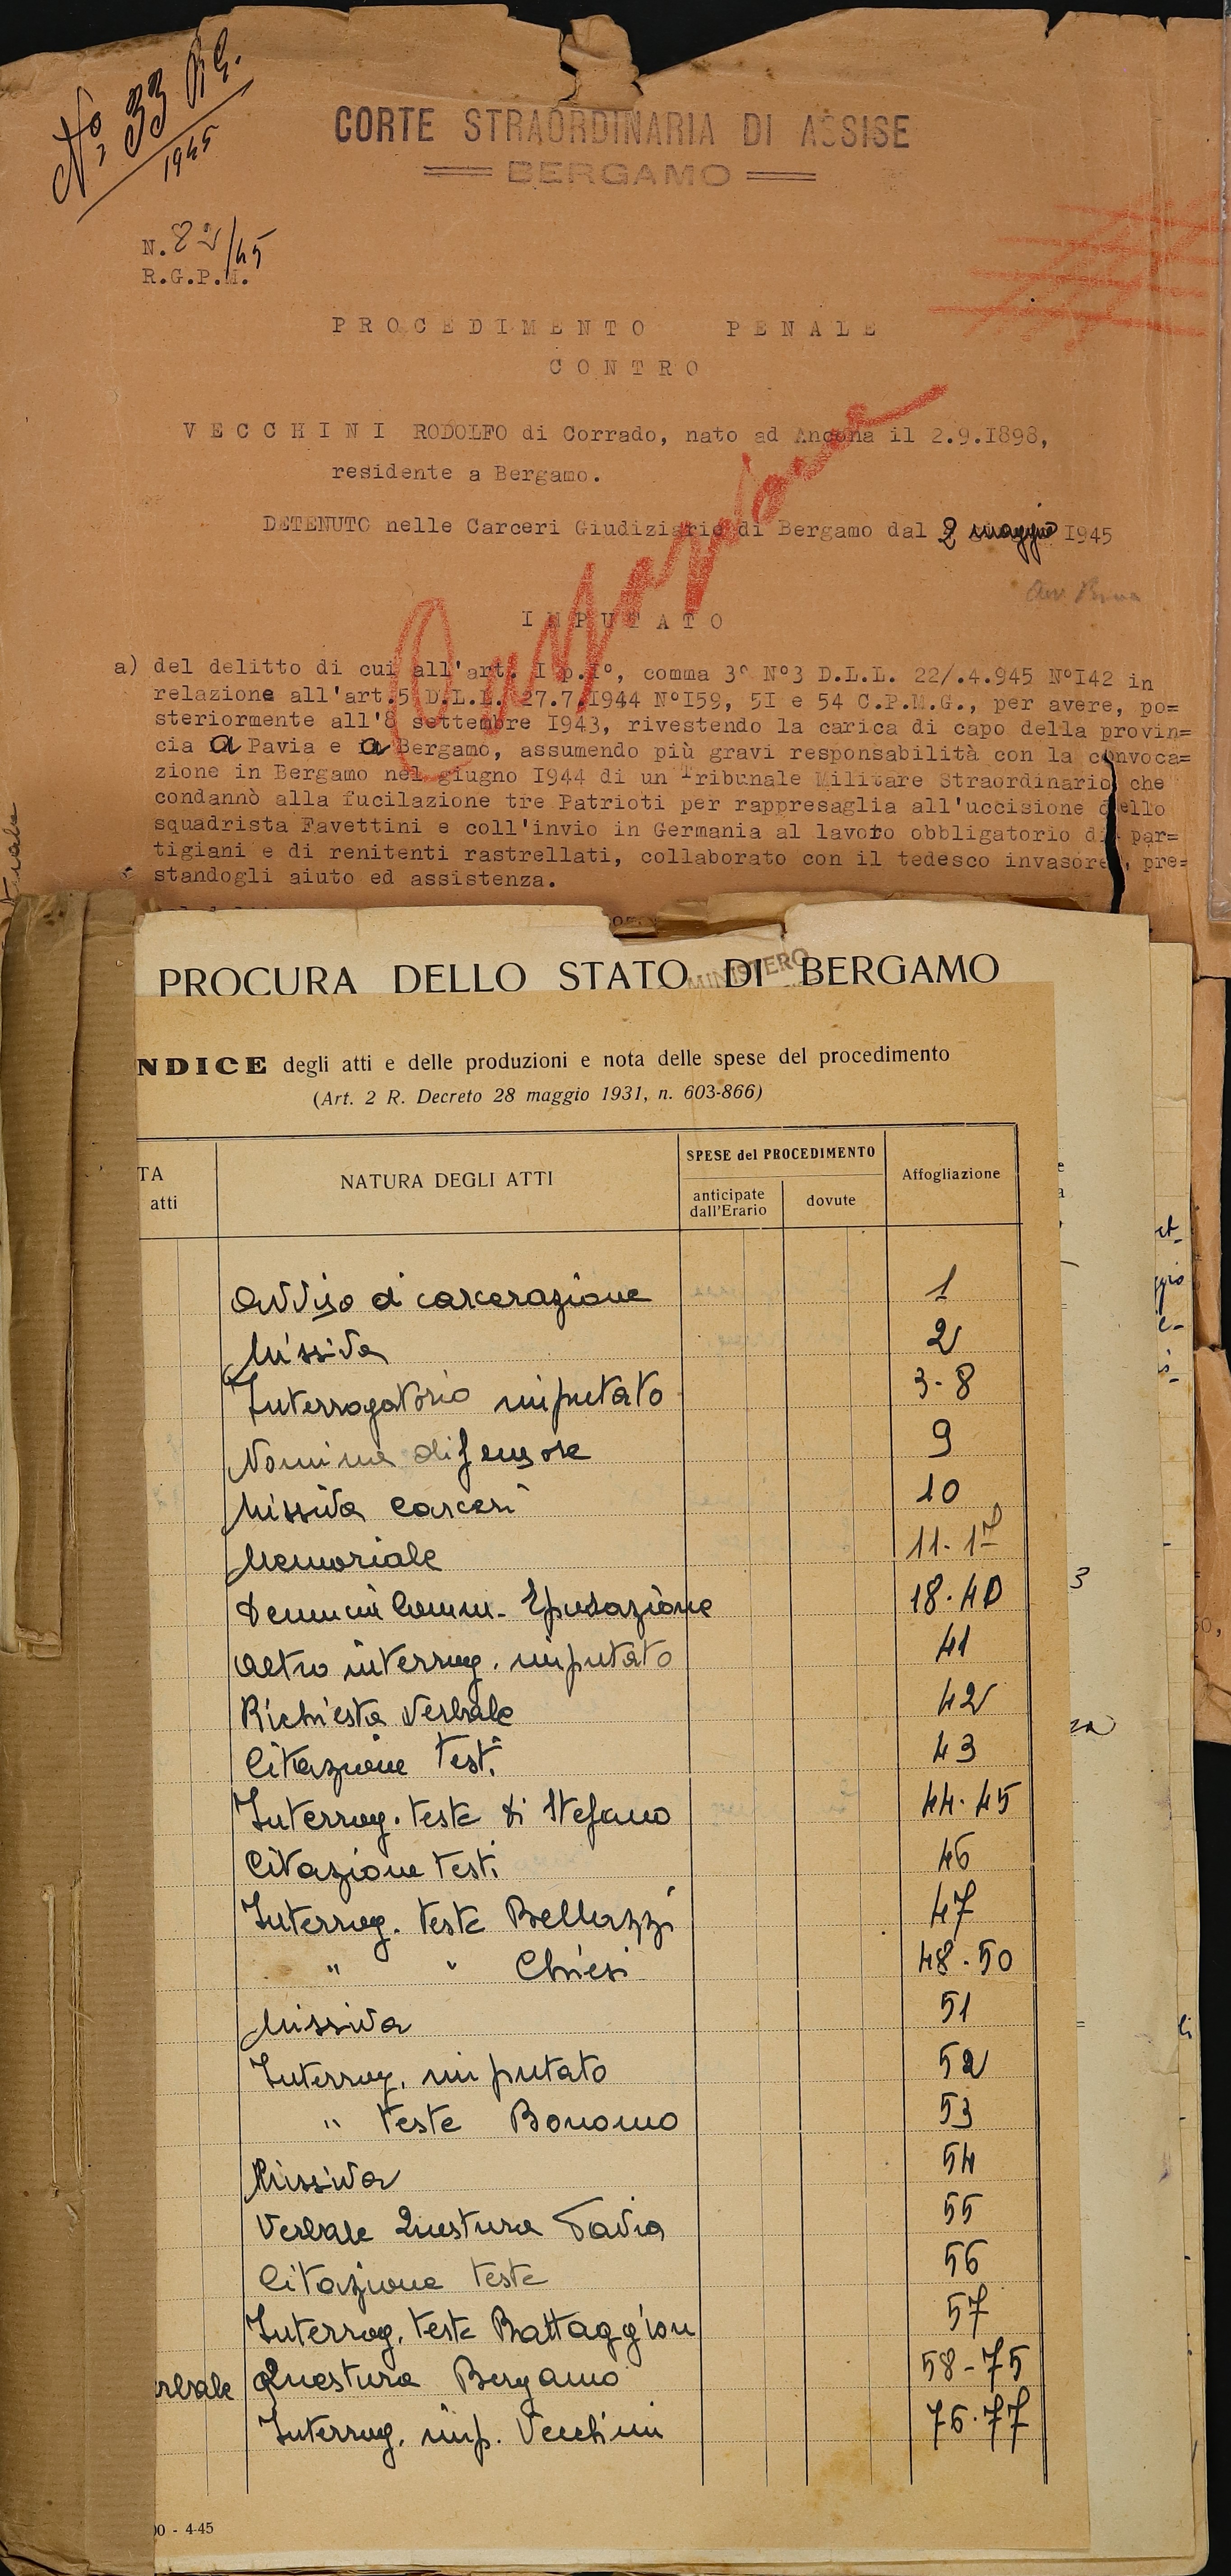 No. 33 RG.
1945
CORTE STRAORDINARIA DI ASSISE
BERGAMO
N. 82/45
R.G.P.M.
PROCEDIMENTO PENALE
CONTRO
VECCHINI RODOLFO di Corrado, nato ad Ancona il 2.9.I898,
residente a Bergamo.
DETENUTO nelle Carceri Giudiziarie di Bergamo dal 2 maggio I945
IMPUTATO
a) del delitto di cui all'art. I p.I°, comma 3° N°3 D.L.L. 22/.4.945 N°I42 in
relazione all'art.5 D.L.L. 27.7.I944 N°I59, 5I e 54 C.P.M.G., per avere, po=
steriormente all'8 settembre I943, rivestendo la carica di capo della provin=
cia a Pavia e a Bergamo, assumendo più gravi responsabilità con la convoca=
zione in Bergamo nel giugno I944 di un Tribunale Militare Straordinario che
condannò alla fucilazione tre Patrioti per rappresaglia all'uccisione dello
squadrista Favettini e coll'invio in Germania al lavoro obbligatorio di par=
tigiani e di renitenti rastrellati, collaborato con il tedesco invasore, pre=
standogli aiuto ed assistenza.
PROCURA DELLO STATO DI BERGAMO
MINISTERO
NDICE degli atti e delle produzioni e nota delle spese del procedimento
(Art. 2 R. Decreto 28 maggio 1931, n. 603-866)
TA
atti
NATURA DEGLI ATTI
SPESE del PROCEDIMENTO
anticipate dall'Erario
dovute
Affogliazione
Avviso di carcerazione 1
Missiva 2
Interrogatorio imputato 3-8
Nomina difensore 9
Missiva carceri 10
Memoriale 11-17
Denuncia Comm. Epurazione 18-40
Altro interrog. imputato 41
Richiesta Verbale 42
Citazione testi 43
Interrog. teste Di Stefano 44-45
Citazione testi 46
Interrog. teste Bellazzi 47
" " Chiesi 48-50
Missiva 51
Interrog. imputato 52
" teste Bonomo 53
Missiva 54
Verbale Questura Pavia 55
Citazione teste 56
Interrog. teste Battaggion 57
rbale Questura Bergamo 58-75
Interrog. imp. Vecchini 76-77
00 - 4-45